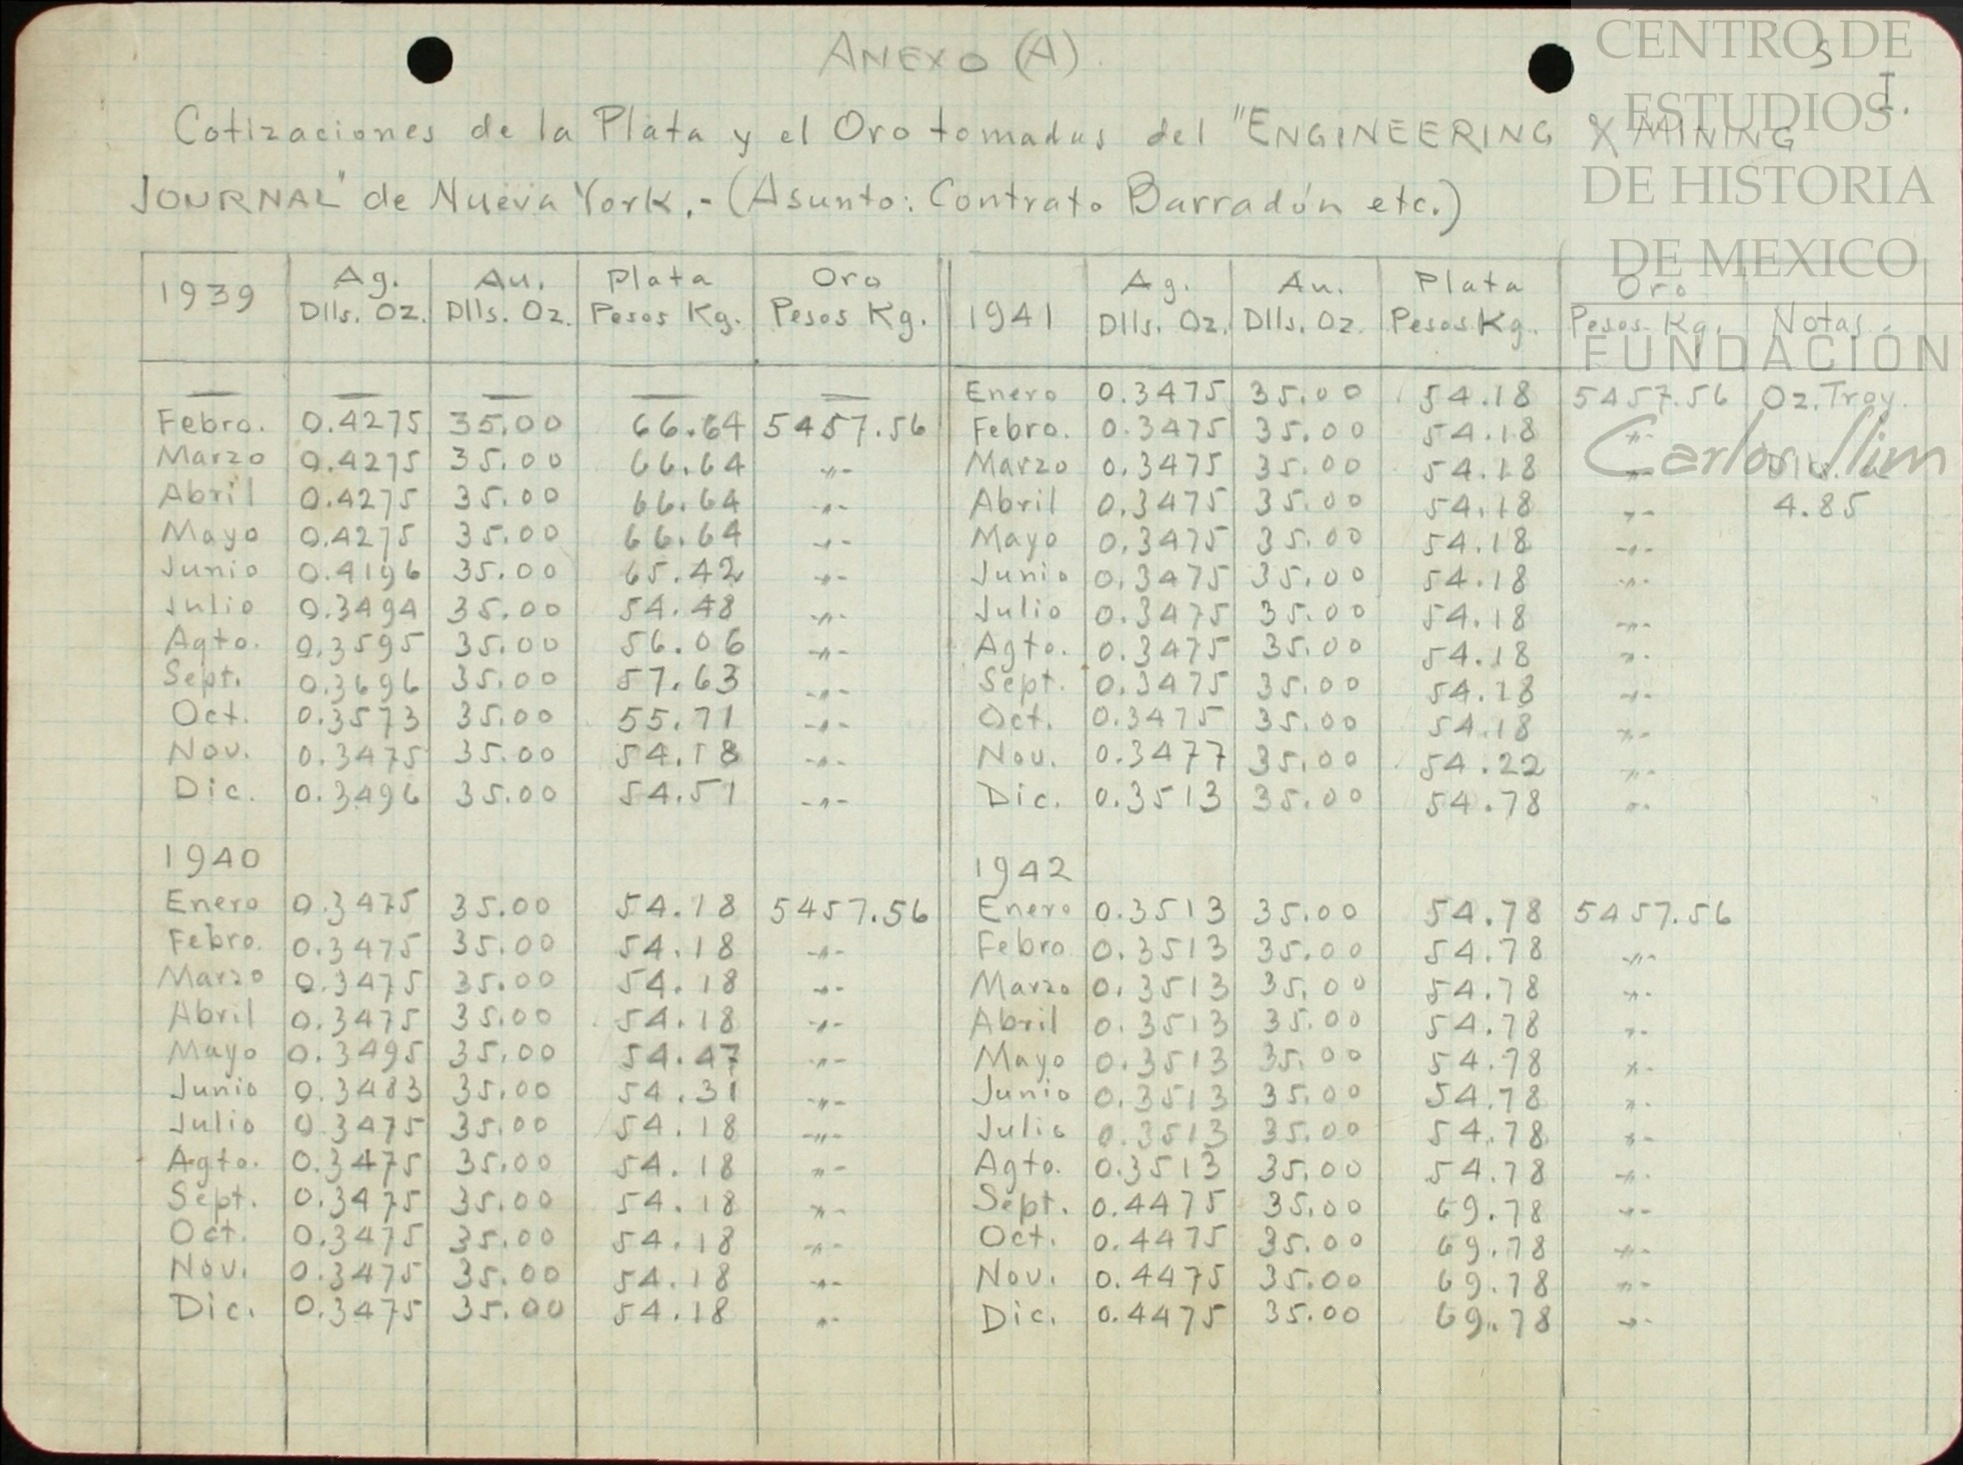 ANEXO (A).
3
I.
Cotizaciones de la Plata y el Oro tomadas del "ENGINEERING & MINING
JOURNAL" de Nueva York.- (Asunto: Contrato Barradón etc.)
CENTRO DE
ESTUDIOS
DE HISTORIA
DE MEXICO
FUNDACIÓN
Carlos Slim
1939 Ag. Dlls. Oz. Au. Dlls. Oz. Plata Pesos Kg. Oro Pesos Kg.
Febro. 0.4275 35.00 66.64 5457.56
Marzo 0.4275 35.00 66.64 -"-
Abril 0.4275 35.00 66.64 -"-
Mayo 0.4275 35.00 66.64 -"-
Junio 0.4196 35.00 65.42 -"-
Julio 0.3494 35.00 54.48 -"-
Agto. 0.3595 35.00 56.06 -"-
Sept. 0.3696 35.00 57.63 -"-
Oct. 0.3573 35.00 55.71 -"-
Nov. 0.3475 35.00 54.18 -"-
Dic. 0.3496 35.00 54.51 -"-
1940
Enero 0.3475 35.00 54.18 5457.56
Febro. 0.3475 35.00 54.18 -"-
Marzo 0.3475 35.00 54.18 -"-
Abril 0.3475 35.00 54.18 -"-
Mayo 0.3495 35.00 54.47 -"-
Junio 0.3483 35.00 54.31 -"-
Julio 0.3475 35.00 54.18 -"-
Agto. 0.3475 35.00 54.18 -"-
Sept. 0.3475 35.00 54.18 -"-
Oct. 0.3475 35.00 54.18 -"-
Nov. 0.3475 35.00 54.18 -"-
Dic. 0.3475 35.00 54.18 -"-
1941 Ag. Dlls. Oz. Au. Dlls. Oz. Plata Pesos Kg. Oro Pesos Kg. Notas.
Enero 0.3475 35.00 54.18 5457.56 Oz. Troy.
Febro. 0.3475 35.00 54.18 -"-
Marzo 0.3475 35.00 54.18 -"-
Abril 0.3475 35.00 54.18 -"- 4.85
Mayo 0.3475 35.00 54.18 -"-
Junio 0.3475 35.00 54.18 -"-
Julio 0.3475 35.00 54.18 -"-
Agto. 0.3475 35.00 54.18 -"-
Sept. 0.3475 35.00 54.18 -"-
Oct. 0.3475 35.00 54.18 -"-
Nov. 0.3477 35.00 54.22 -"-
Dic. 0.3513 35.00 54.78 -"-
1942
Enero 0.3513 35.00 54.78 5457.56
Febro 0.3513 35.00 54.78 -"-
Marzo 0.3513 35.00 54.78 -"-
Abril 0.3513 35.00 54.78 -"-
Mayo 0.3513 35.00 54.78 -"-
Junio 0.3513 35.00 54.78 -"-
Julio 0.3513 35.00 54.78 -"-
Agto. 0.3513 35.00 54.78 -"-
Sept. 0.4475 35.00 69.78 -"-
Oct. 0.4475 35.00 69.78 -"-
Nov. 0.4475 35.00 69.78 -"-
Dic. 0.4475 35.00 69.78 -"-